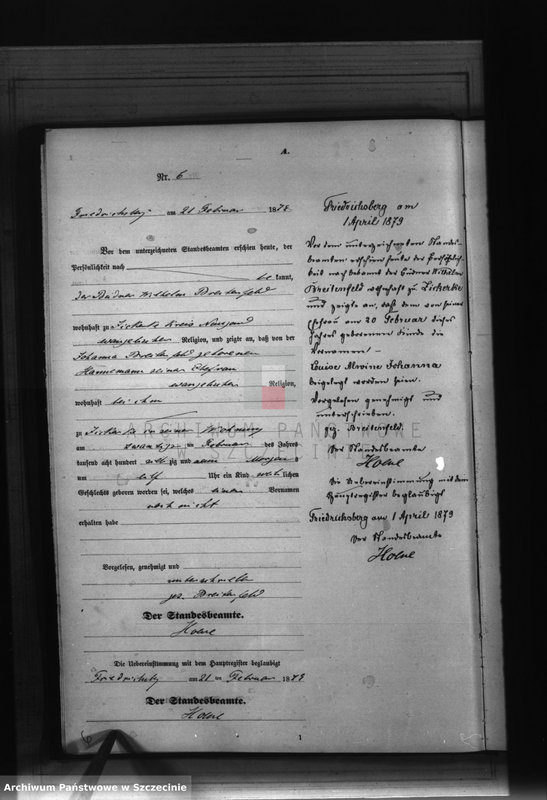 A.
Nr. 6
Friedrichsberg am 21 Februar 1879
Vor dem unterzeichneten Standesbeamten erschien heute, der
Persönlichkeit nach
be kannt,
der Büdner Wilhelm Breitenfeld
wohnhaft zu Kreis Naugard
evangelischer Religion, und zeigte an, daß von der
Johanna Breitenfeld geborenen
Hannemann seiner Ehefrau
evangelischer Religion,
wohnhaft bei ihm
zu in seiner Wohnung
am zwanzigsten Februar des Jahres
tausend acht hundert zig und neun Morgens
um elf Uhr ein Kind weib lichen
Geschlechts geboren worden sei, welches einen Vornamen
noch nicht
erhalten habe
Vorgelesen, genehmigt und
unterschrieben
gez. Breitenfeld
Der Standesbeamte.
Howe
Die Uebereinstimmung mit dem Hauptregister beglaubigt
Friedrichsberg am 21 ten Februar 1879
Der Standesbeamte.
Howe
Friedrichsberg am
1 April 1879
Vor dem unterzeichneten Standes-
beamten erschien heute der Persönlich-
keit nach bekannt der Büdner Wilhelm
Breitenfeld wohnhaft zu
und zeigte an, daß dem von seiner
Ehefrau am 20 Februar dieses
Jahres geborenen Kinde die
Vornamen –
Louise Alwine Johanna
beigelegt worden seien.
Vorgelesen genehmigt und
unterschrieben.
gez. Breitenfeld.
Der Standesbeamte
Howe
Die Uebereinstimmung mit dem
Hauptregister beglaubigt
Friedrichsberg am 1 April 1879
Der Standesbeamte
Howe
1
ARCHIWUM PAŃSTWOWE
W SZCZECINIE
Archiwum Państwowe w Szczecinie